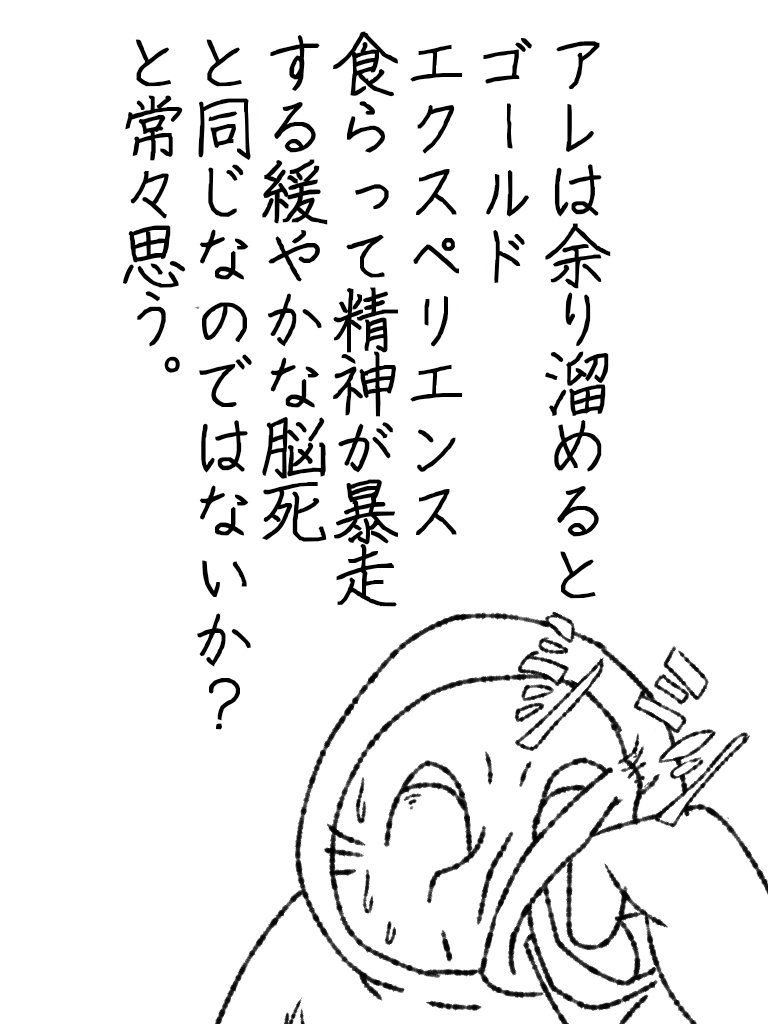 アレは余り溜めると
ゴールド
エクスペリエンス
食らって精神が暴走
する緩やかな脳死
と同じなのではないか?
と常々思う。